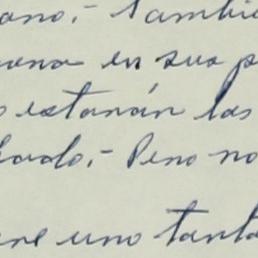 ano,- Tambié
ana en sus p
o estarán las
hado,- Pero no
ene uno tanta